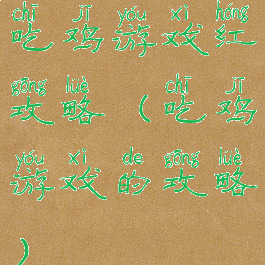 chī jī yóu xì hóng
吃鸡游戏红
gōng lüè chī jī
攻略（吃鸡
yóu xì de gōng lüè
游戏的攻略
）